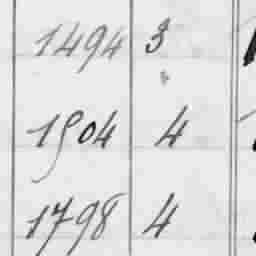 1494 3
1504 4
1798 4